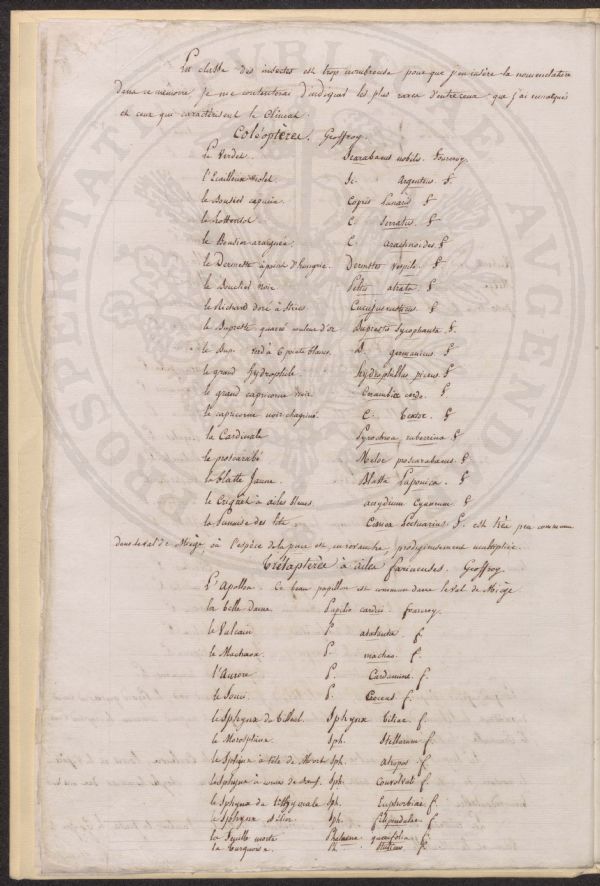 La classe des insectes est trop nombreuse pour que j'en insère la nomenclature
dans ce mémoire je me contenterai d'indiquer les plus rares d'entre eux que j'ai remarqués
et ceux qui caractérisent le Climat.
Coléoptères. Geoffroy.
le Verdet. Scarabaeus nobilis. Fourcroy.
l'Ecailleux violet. Sc. Argenteus. F.
le Bousier capucin. Copris Lunaris F
le C. Serratus. F
le Bousier araignée. C. Arachnoides F
le Dermeste à point d'hongrie. Dermestes vespillo. F
le Bouclier noir Peltis atrata. F
le Richard doré à stries Cucujus rusticus. F
le Bupreste quarré couleur d'or Buprestis Sycophanta. F.
le Bup. verd à 6 points blancs. B. germanicus. F.
le grand Hydrophile. Hydrophillus piceus F
le grand capricorne noir. Cerambix cerdo. F
le capricorne noir chagriné. C. Textor. F
la Cardinale Pyrochroa rubecrina F
le proscarabé Meloe proscarabaeus. F
la blatte Jaune. Blatta Laponica. F
le Criquet à ailes bleues. acrydium Cyaneum F
la punaise des lits Cimex Lectuarius F. est très peu commune
dans le val de Miège où l'espèce de la puce est, en revanche, prodigieusement multipliée.
Tétraptères à ailes farineuses. Geoffroy.
L'Apollon. Ce beau papillon est commun dans le Val de Miège.
la belle dame. Papilio cardui. fourcroy.
le Vulcain P. atalanta. f.
le Machaon. P. machao. f.
l'Aurore. P. Cardamine. f
le Souci. P. Croceus. f
le Sphynx du Tilleul. Sphynx tiliae. f.
le Morosphinx. Sph. Stellarum f.
le Sphynx à tête de Mort Sph. atropos f.
le Sphynx à cornes de boeuf. Sph. Convolvuli f.
le Sphynx du tithymale Sph. Euphorbiae f.
le Sphynx Sph. filipendulae f.
la feuille morte Phalaena quercifolia f.
la turquoise. Ph. Statices f.